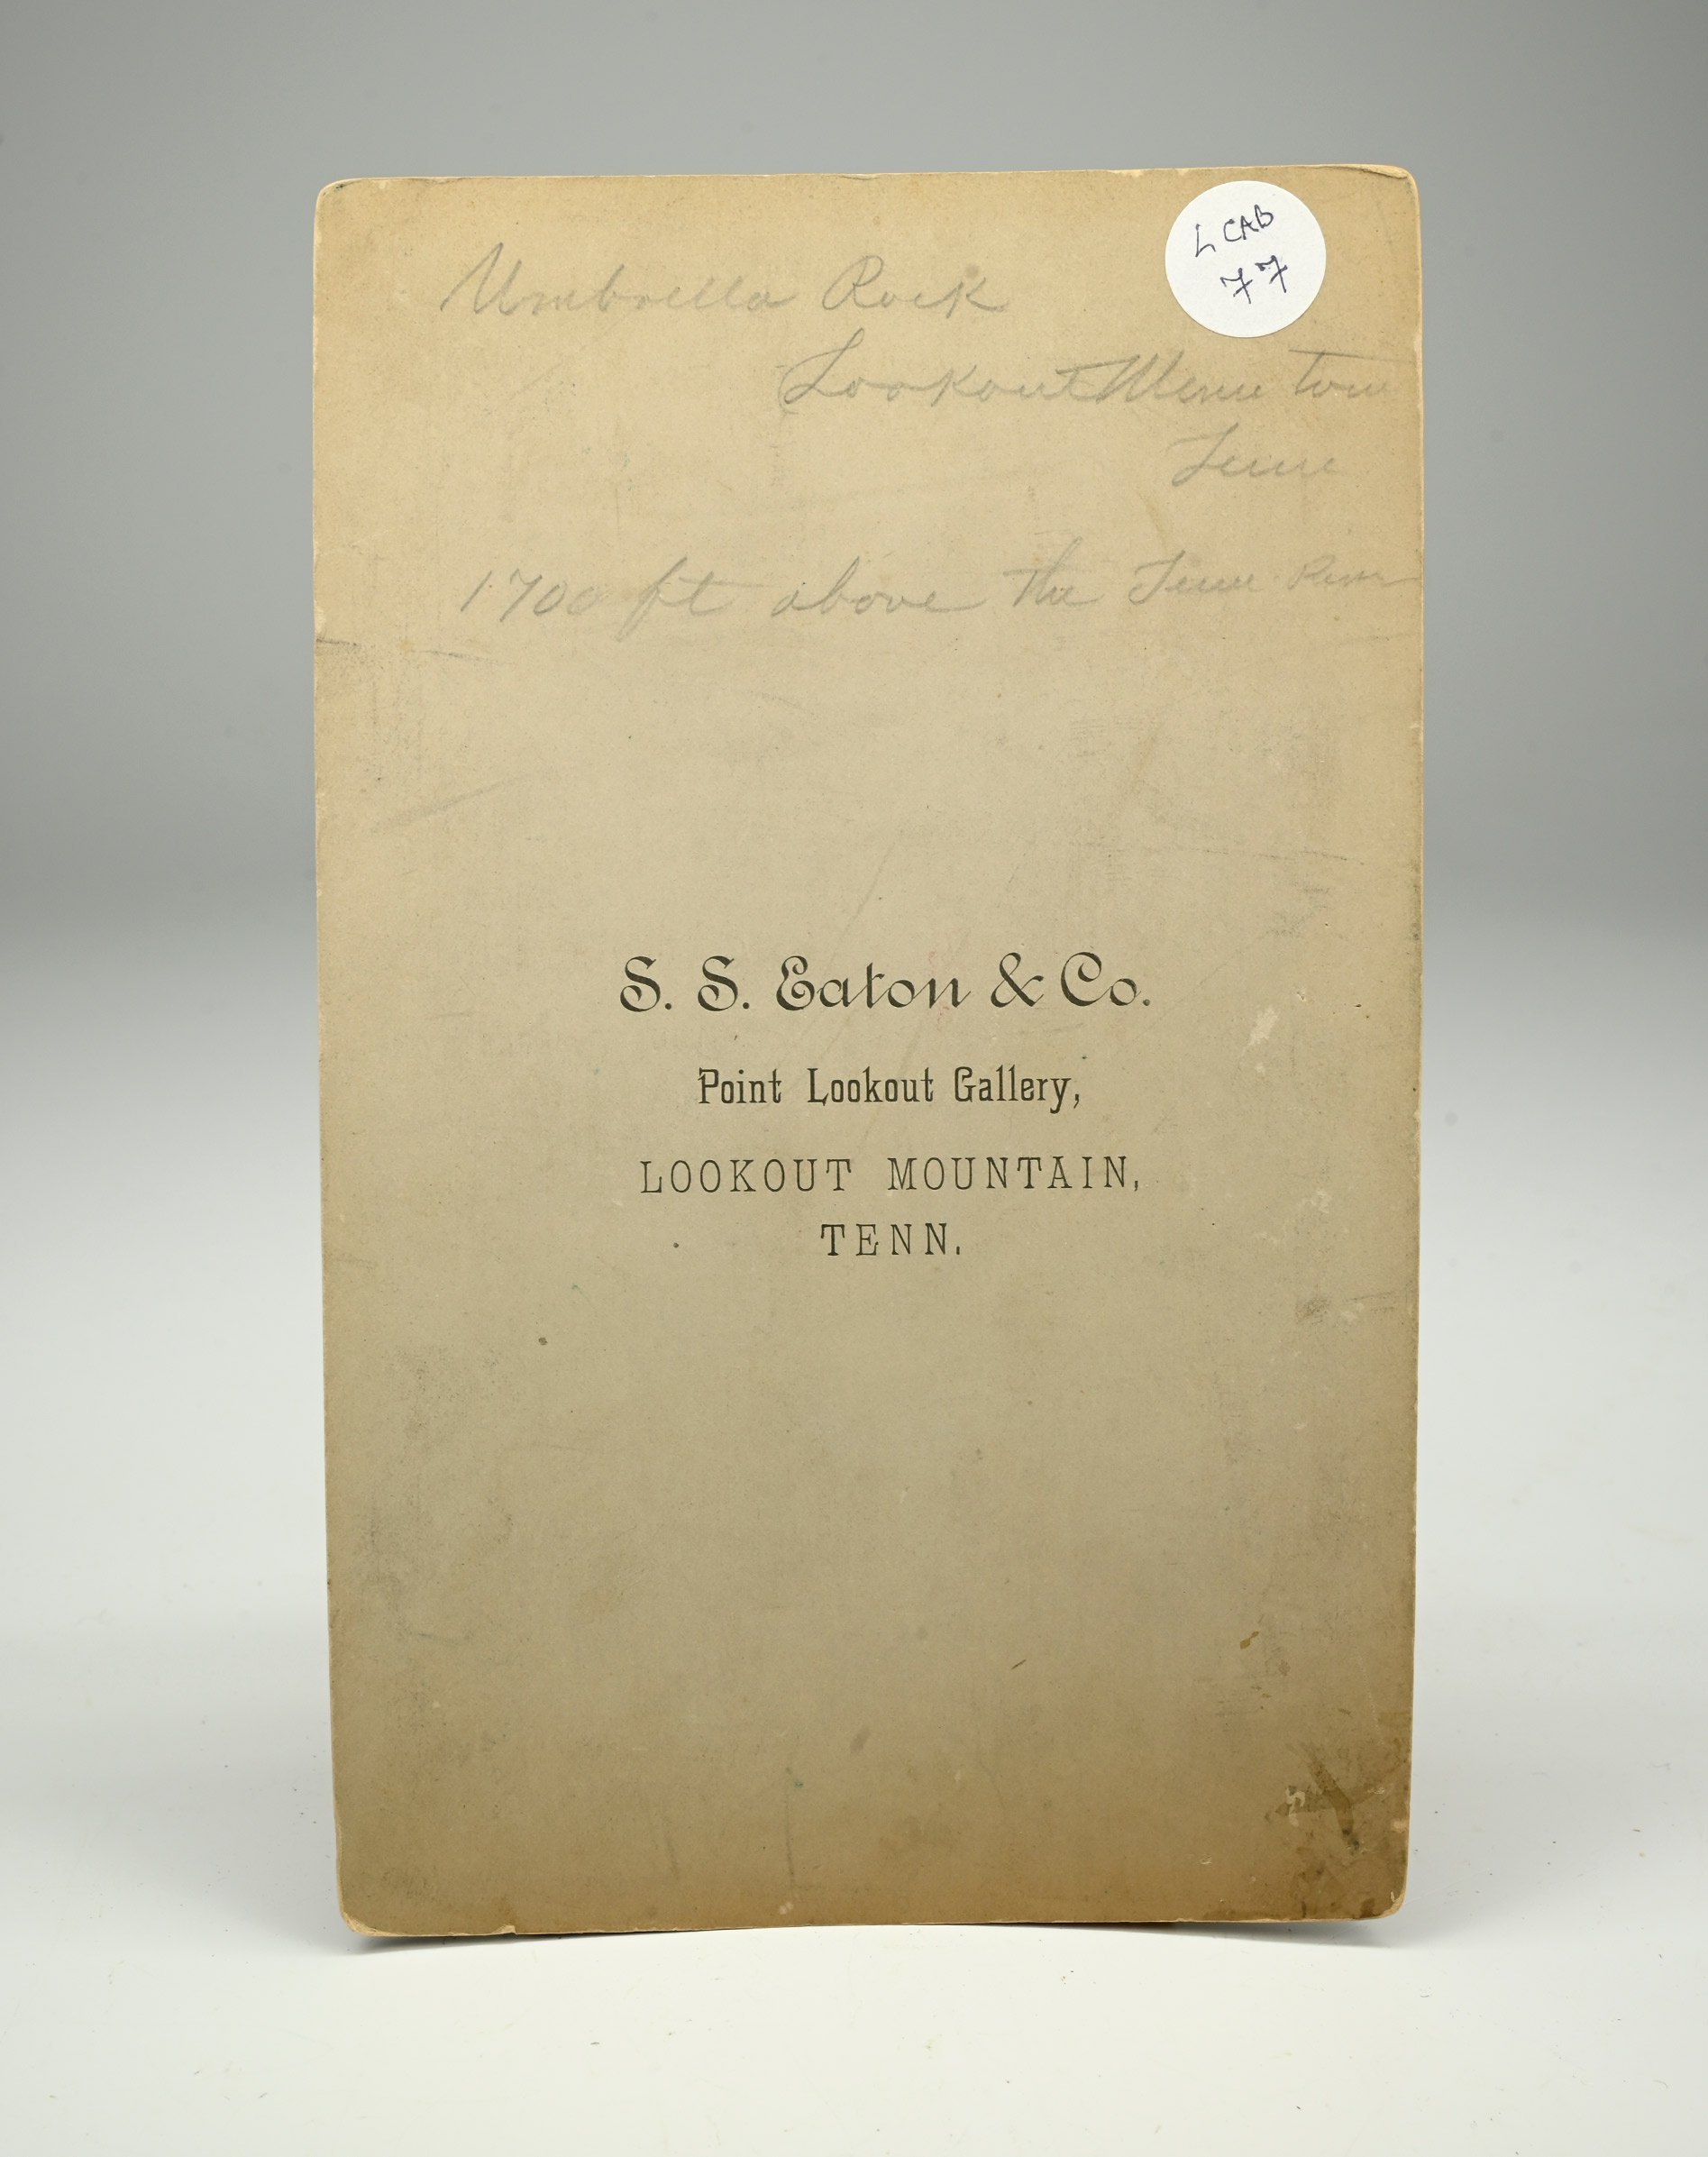 L CAB
77
Umbrella Rock
Lookout
Tenn
1700 ft above the Tenn River
S. S. Eaton & Co.
Point Lookout Gallery,
LOOKOUT MOUNTAIN,
TENN.